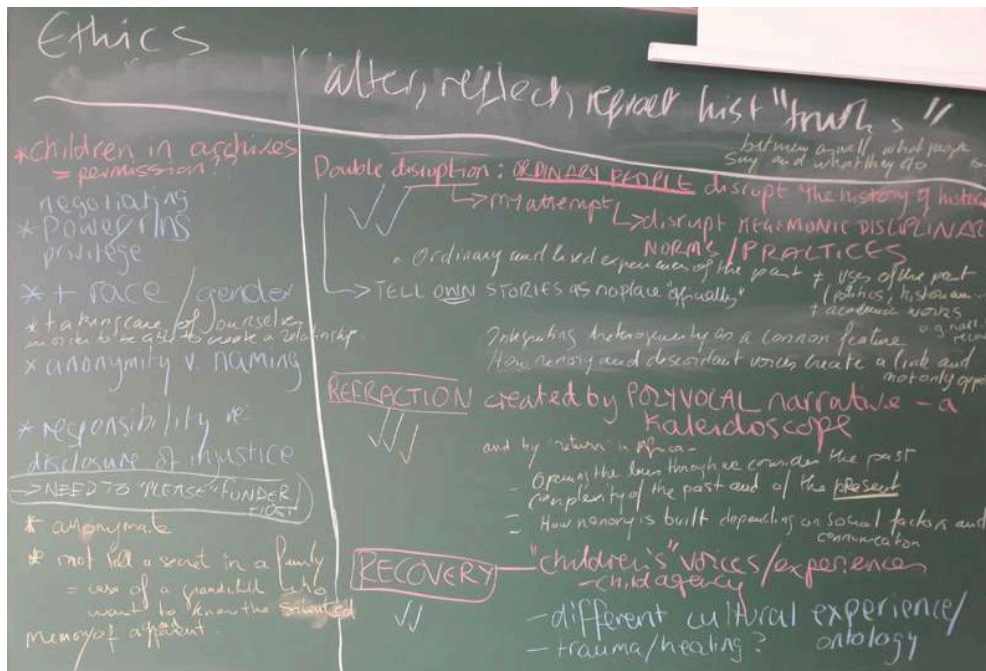 Ethics
*children in archives
= permission?
negotiating
*power/
privilege
* + race/gender
* taking care of ourselves
in order to be able to create a relationship
* anonymity v. naming
* responsibility re
disclosure of injustice
→ NEED TO "PLEASE" FUNDER/
HOST
* anonymate
* not tell a secret in a family
= case of a grandchild who
want to know the silented
memory of a parent
alter, reflect, refract hist "truth s"
as well, what people
say and what they do
Double disruption: ORDINARY PEOPLE disrupt "the history of
→ my attempt → disrupt HEGEMONIC DISCIPLINAR
NORMS/PRACTICES
. Ordinary and lived experiences of the past + uses of the past
(politics, historian
→ TELL OWN STORIES as no place "officially"
+ academic works
e.g.
Integrating heterogeneity as a common feature
How memory and discordant voices create a link and
not only
REFRACTION created by POLYVOCAL narrative - a
Kaleidoscope
and by "return" in Africa -
- Opening the lens through we consider the past
- complexity of the past and of the present
- How memory is built depending on social factors and
communication
RECOVERY - "children's" voices/experiences
- child agency
- different cultural experience/
ontology
- trauma/healing?